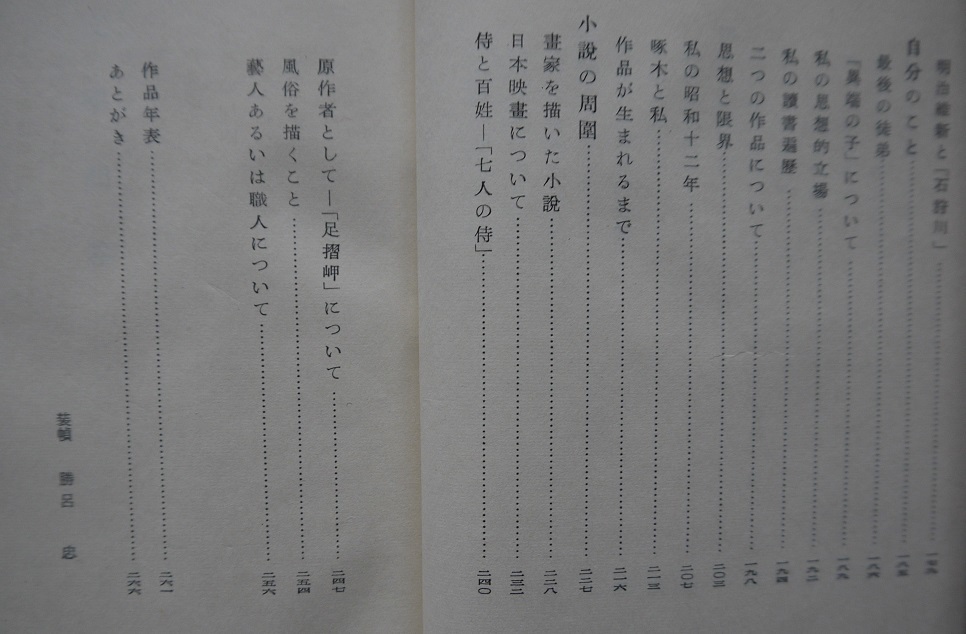 明治維新と「石狩川」……一七九
自分のこと……一八五
最後の徒弟……一八六
「異端の子」について……一八九
私の思想的立場……一九二
私の讀書遍歷……一九四
二つの作品について……一九八
思想と限界……二〇三
私の昭和十二年……二〇七
啄木と私……二一三
作品が生まれるまで……二一六
小說の周圍……二二七
畫家を描いた小說……二二八
日本映畫について……二三二
侍と百姓―「七人の侍」……二四〇
原作者として―「足摺岬」について……二四七
風俗を描くこと……二五四
藝人あるいは職人について……二五六
作品年表……二六一
あとがき……二六六
装幀 勝呂 忠